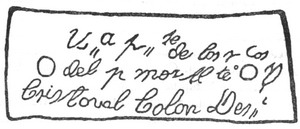 U„ a p„ te de los r cos
del p mor Al te
Cristoval Colon Des„